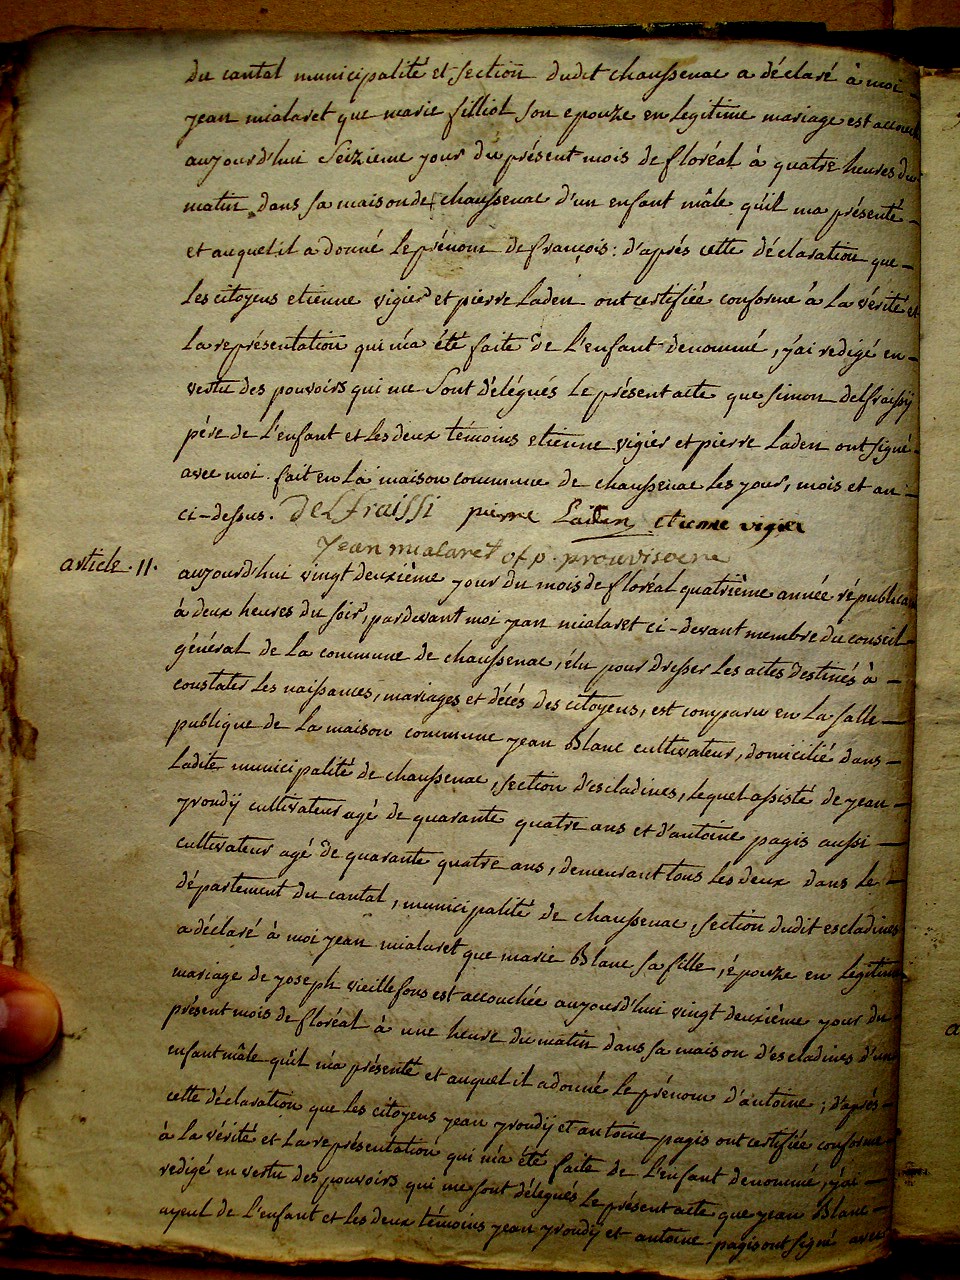 du cantal municipalité et section dudit chaussenac a déclaré à moi
jean mialaret que marie filliol son epouze en legitime mariage est
aujourd'hui séizieme jour du présent mois de floréal à quatre heures du
matin dans sa maison de chaussenac d'un enfant mâle qu'il ma présenté
et auquel il a donné le prénom de françois : d'aprés cette déclaration que
les citoyens etienne vigier et pierre Laden ont certifiée conforme à la vérité et
la représentation qui m'a été faite de l'enfant denommé, j'ai redigé en
vertu des pouvoirs qui me sont délégués le présent acte que simon delfraissÿ
pére de l'enfant et les deux témoins etienne vigier et pierre laden ont signé
avec moi. fait en la maison commune de chaussenac les jour, mois et an
ci-dessus. delfraissi pierre Laden etienne vigier
jean mialaret of p. prouvisoere
article. 11. aujourd'hui vingt deuxième jour du mois de floréal quatrième année
à deux heures du soir, pardevant moi jean mialaret ci-devant membre du conseil
général de la commune de chaussenac, élu pour dresser les actes destinés à
constater les naissances, mariages et décés des citoyens, est comparu en la salle
publique de la maison commune jean Blanc cultivateur, domicilié dans
ladite municipalité de chaussenac, section d'escladines, lequel assisté de jean
yroudÿ cultivateur agé de quarante quatre ans et d'antoine pagis aussi
cultivateur agé de quarante quatre ans, demeurant tous les deux dans le
département du cantal, municipalité de chaussenac, section dudit escladines
a déclaré à moi jean mialaret que marie Blanc sa fille, épouze en legitime
mariage de joseph vieillefons est accouchée aujourd'hui vingt deuxième jour du
présent mois de floréal à une heure du matin dans sa maison d'escladines d'un
enfant mâle qu'il m'a présenté et auquel il a donné le prénom d'antoine ; d'aprés
cette déclaration que les citoyens jean yroudÿ et antoine pagis ont certifiée conforme
à la vérité et la représentation qui m'a été faite de l'enfant denommé, j'ai
redigé en vertu des pouvoirs qui me sont délégués le présent acte que jean Blanc
ayeul de l'enfant et les deux témoins jean yroudÿ et antoine pagis ont signé avec